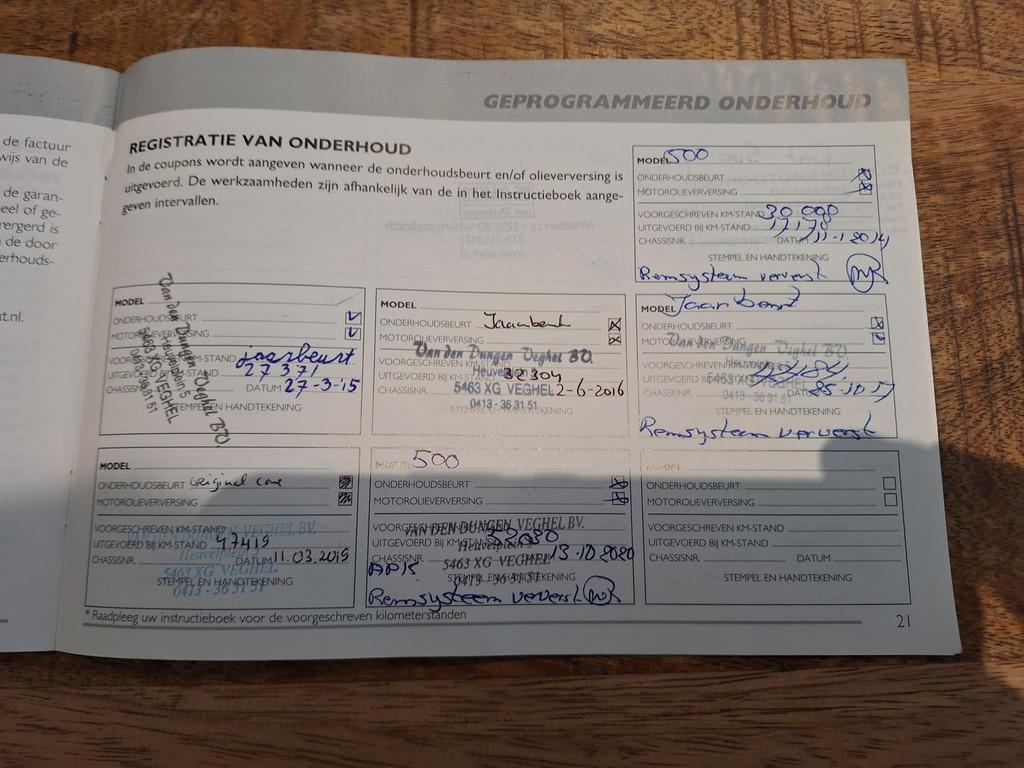 de factuur
wijs van de
de garan-
eel of ge-
rergerd is
de door
erhouds-
t.nl.
GEPROGRAMMEERD ONDERHOUD
REGISTRATIE VAN ONDERHOUD
In de coupons wordt aangeven wanneer de onderhoudsbeurt en/of olieverversing is
uitgevoerd. De werkzaamheden zijn afhankelijk van de in het Instructieboek aange-
geven intervallen.
MODEL 500
ONDERHOUDSBEURT
MOTOROLIEVERVERSING
VOORGESCHREVEN KM-STAND 30 000
UITGEVOERD BIJ KM-STAND 17178
CHASSISNR. DATUM 11-1 2014
STEMPEL EN HANDTEKENING
Remsysteem ververst
MODEL
ONDERHOUDSBEURT
MOTOROLIEVERVERSING
VOORGESCHREVEN KM-STAND jaarbeurt
UITGEVOERD BIJ KM-STAND 27371
CHASSISNR. DATUM 27-3-15
STEMPEL EN HANDTEKENING
Van den Dungen Veghel BV.
Heuvelplein 5
5463 XG VEGHEL
0413-36 31 51
MODEL
ONDERHOUDSBEURT Jaarbeurt
MOTOROLIEVERVERSING
Van den Dungen Veghel BV.
VOORGESCHREVEN KM-STAND
Heuvelplein 5
UITGEVOERD BIJ KM-STAND 32304
CHASSISNR. 5463 XG VEGHEL 2-6-2016
0413 - 36 31 51
STEMPEL EN HANDTEKENING
MODEL Jaarbeurt
ONDERHOUDSBEURT
MOTOROLIEVERVERSING
Van den Dungen Veghel BV.
VOORGESCHREVEN KM-STAND
Heuvelplein 5
UITGEVOERD BIJ KM-STAND
5463 XG VEGHEL
CHASSISNR. DATUM
0413 - 36 31 51
STEMPEL EN HANDTEKENING
Remsysteem ververst
MODEL
ONDERHOUDSBEURT original care
MOTOROLIEVERVERSING
VOORGESCHREVEN KM-STAND
VAN DEN DUNGEN VEGHEL BV.
UITGEVOERD BIJ KM-STAND 47419
Heuvelplein 5
CHASSISNR. DATUM 11.03.2019
5463 XG VEGHEL
STEMPEL EN HANDTEKENING
0413 - 36 31 51
MODEL 500
ONDERHOUDSBEURT
MOTOROLIEVERVERSING
VOORGESCHREVEN KM-STAND
VAN DEN DUNGEN VEGHEL BV.
UITGEVOERD BIJ KM-STAND
Heuvelplein 5
CHASSISNR. 13-10 2020
5463 XG VEGHEL
APK
STEMPEL EN HANDTEKENING
0413 - 36 31 51
Remsysteem ververst
MODEL
ONDERHOUDSBEURT
MOTOROLIEVERVERSING
VOORGESCHREVEN KM-STAND
UITGEVOERD BIJ KM-STAND
CHASSISNR. DATUM
STEMPEL EN HANDTEKENING
* Raadpleeg uw instructieboek voor de voorgeschreven kilometerstanden
21